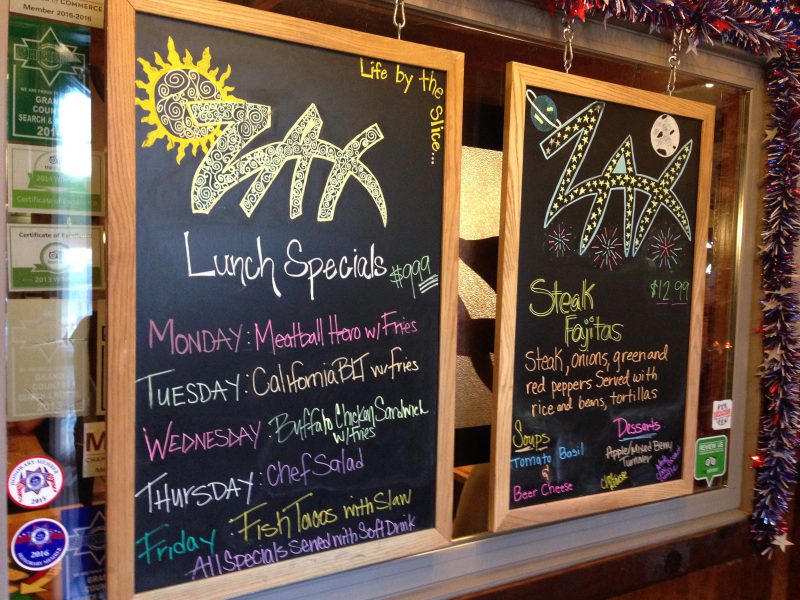 COMMERCE
Member 2015-2016
Certificate of Excellence
2013
HONORARY MEMBER
2015
2016
HONORARY MEMBER
Life by the Slice...
ZAX
Lunch Specials $9.99
Monday: Meatball Hero w/ Fries
Tuesday: California BLT w/ Fries
Wednesday: Buffalo Chicken Sandwich
w/ Fries
Thursday: Chef Salad
Friday: Fish Tacos with Slaw
All Specials Served with Soft Drink
ZAX
$12.99
Steak
Fajitas
Steak, onions, green and
red peppers Served with
rice and beans, tortillas
Soups
Tomato Basil
Beer Cheese
Desserts
Apple/Mixed Berry
Turnover
REVIEW US